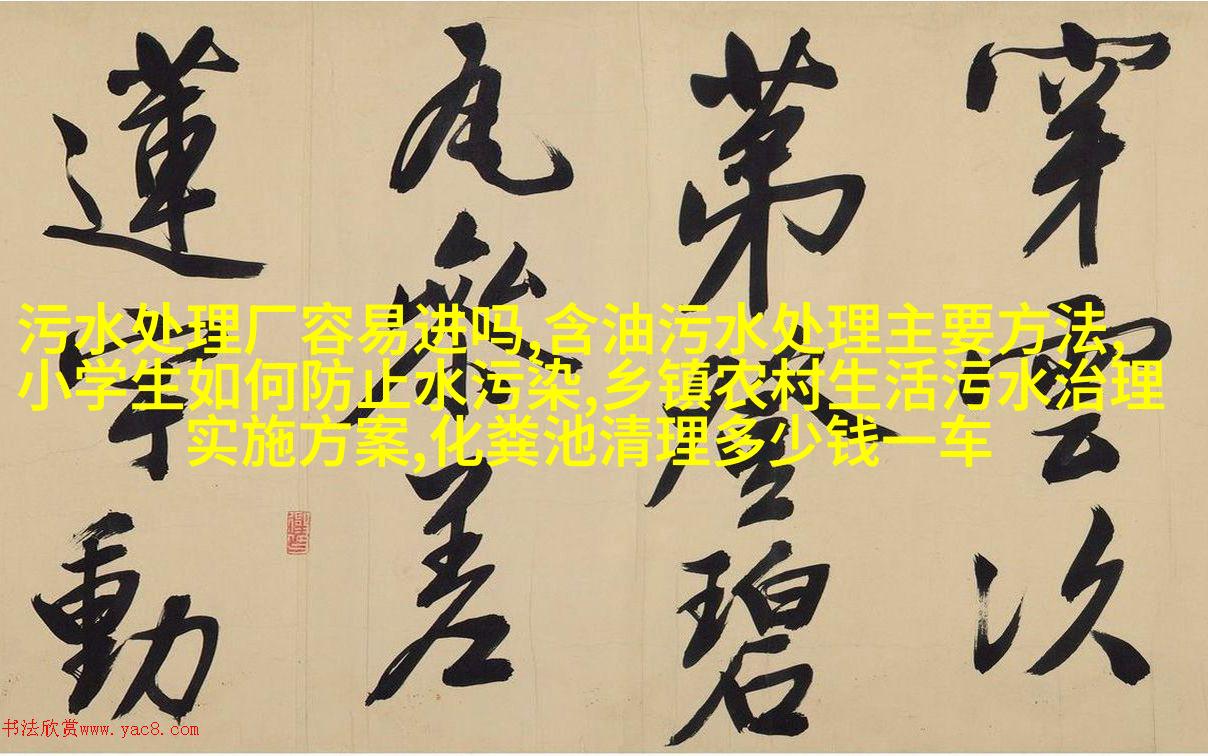 穿雲次
苐碧
瓦參差
蓮宇動
污水处理厂容易进吗,含油污水处理主要方法,
小学生如何防止水污染,乡镇农村生活污水治理
实施方案,化粪池清理多少钱一车
书法欣赏www.yac8.com